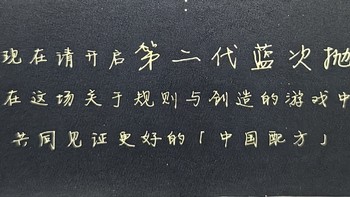 现在请开启第二代蓝次抛
在这场关于规则与创造的游戏中
共同见证更好的「中国配方」